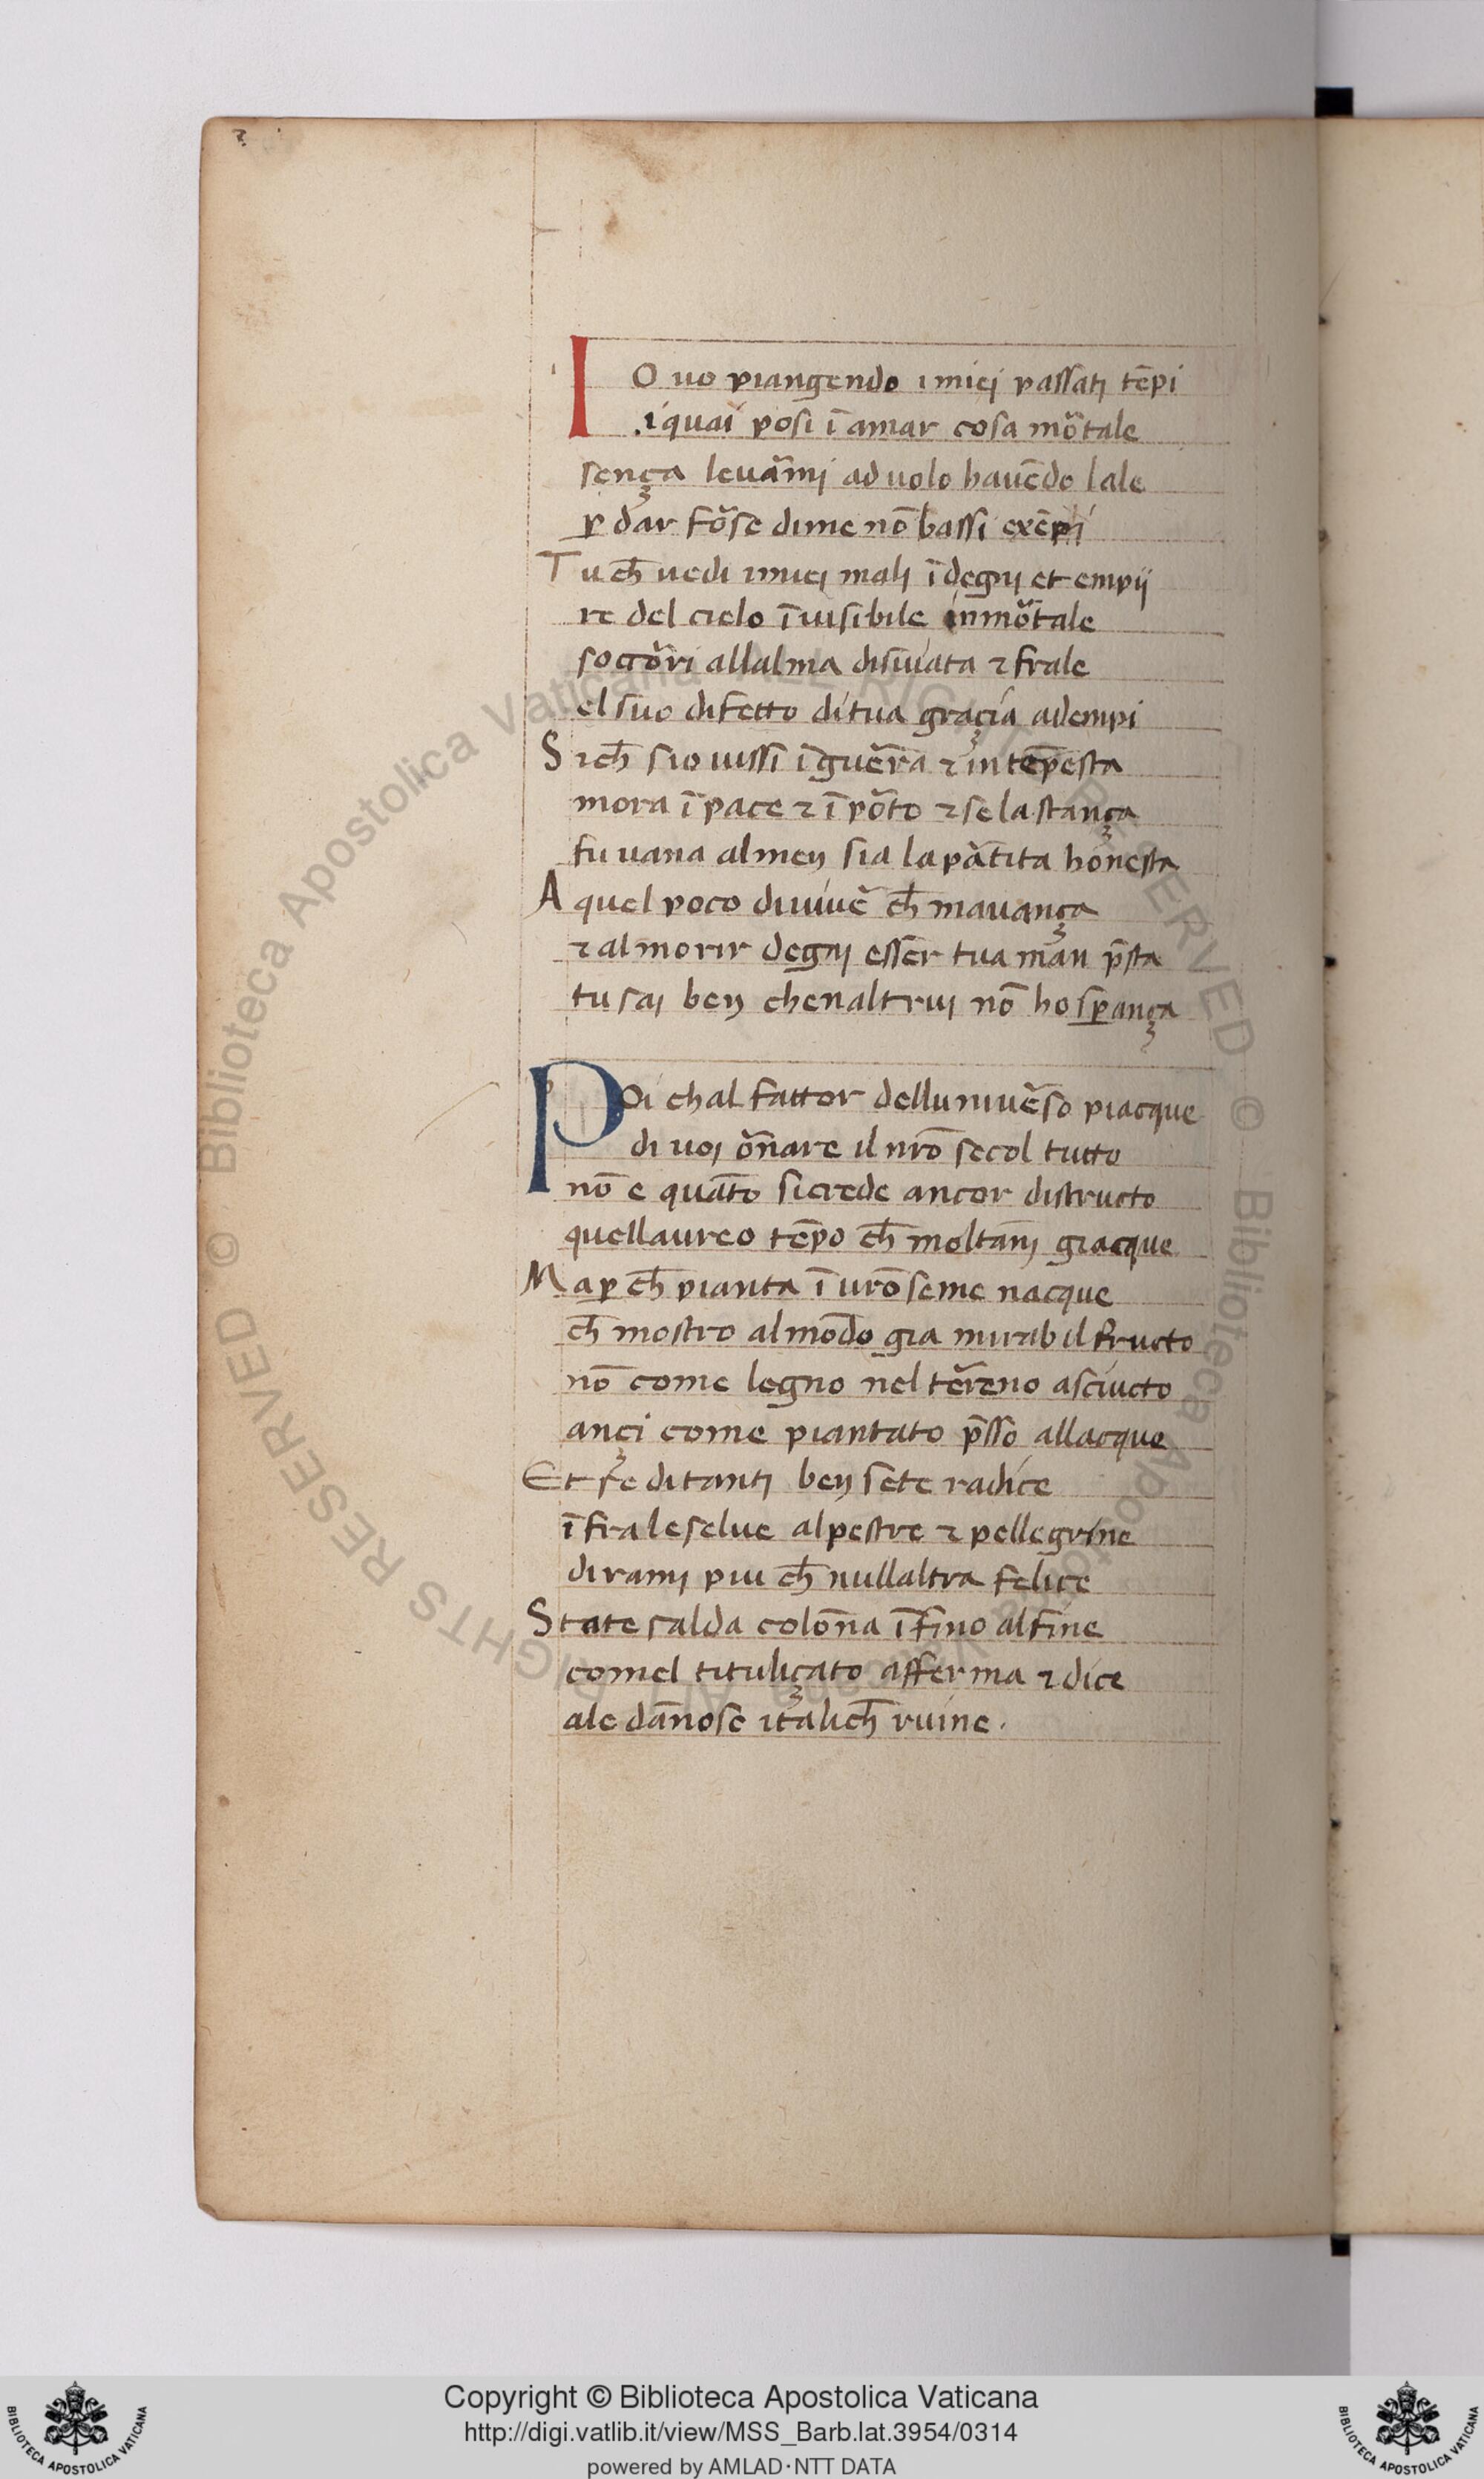 IO uo piangendo i miej passatj tēpi
i quai posi ī amar cosa mor̃tale
sença leuar̃mj ad uolo hauēdo lale
ꝑ dar for̃se di me nō bassi exēpi
Tu ch̄ uedi i miej malj īdegnj et empij
re del cielo īuisibile inmor̃tale
soccor̃ri allalma disuiata ⁊ frale
el suo difetto di tua graçia adempi
Sich̄ sio uissi ī guer̃ra ⁊ in tēpesta
mora ī pace ⁊ ī por̃to ⁊ se la stança
fu uana almen sia la par̃tita honesta
A quel poco di uiuer̃ ch̄ mauança
⁊ al morir degnj esser tua man p̄sta
tu saj ben chenaltruj nō ho sꝑança
Poi chal fattor delluniuer̃so piacque
di uoj or̃nare il nrō secol tutto
nō e quāto si crede ancor distructo
quellaureo tēpo ch̄ moltānj giacque
Ma ꝑch̄ pianta ī urō seme nacque
ch̄ mostro al mōdo gia mirabil fructo
nō come legno nel ter̃reno asciucto
ançi come piantato p̄sso allacque
Et se di tantj ben sete radice
īfra le selue alpestre ⁊ pellegrine
di ramj piu ch̄ nullaltra felice
State salda colōna īfino al fine
comel titulichato afferma ⁊ dice
ale dānose italich̄ ruine.
Copyright © Biblioteca Apostolica Vaticana
http://digi.vatlib.it/view/MSS_Barb.lat.3954/0314
powered by AMLAD·NTT DATA